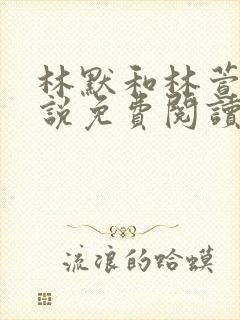 林默和林萱
說免費閱讀
流浪的哈蟆